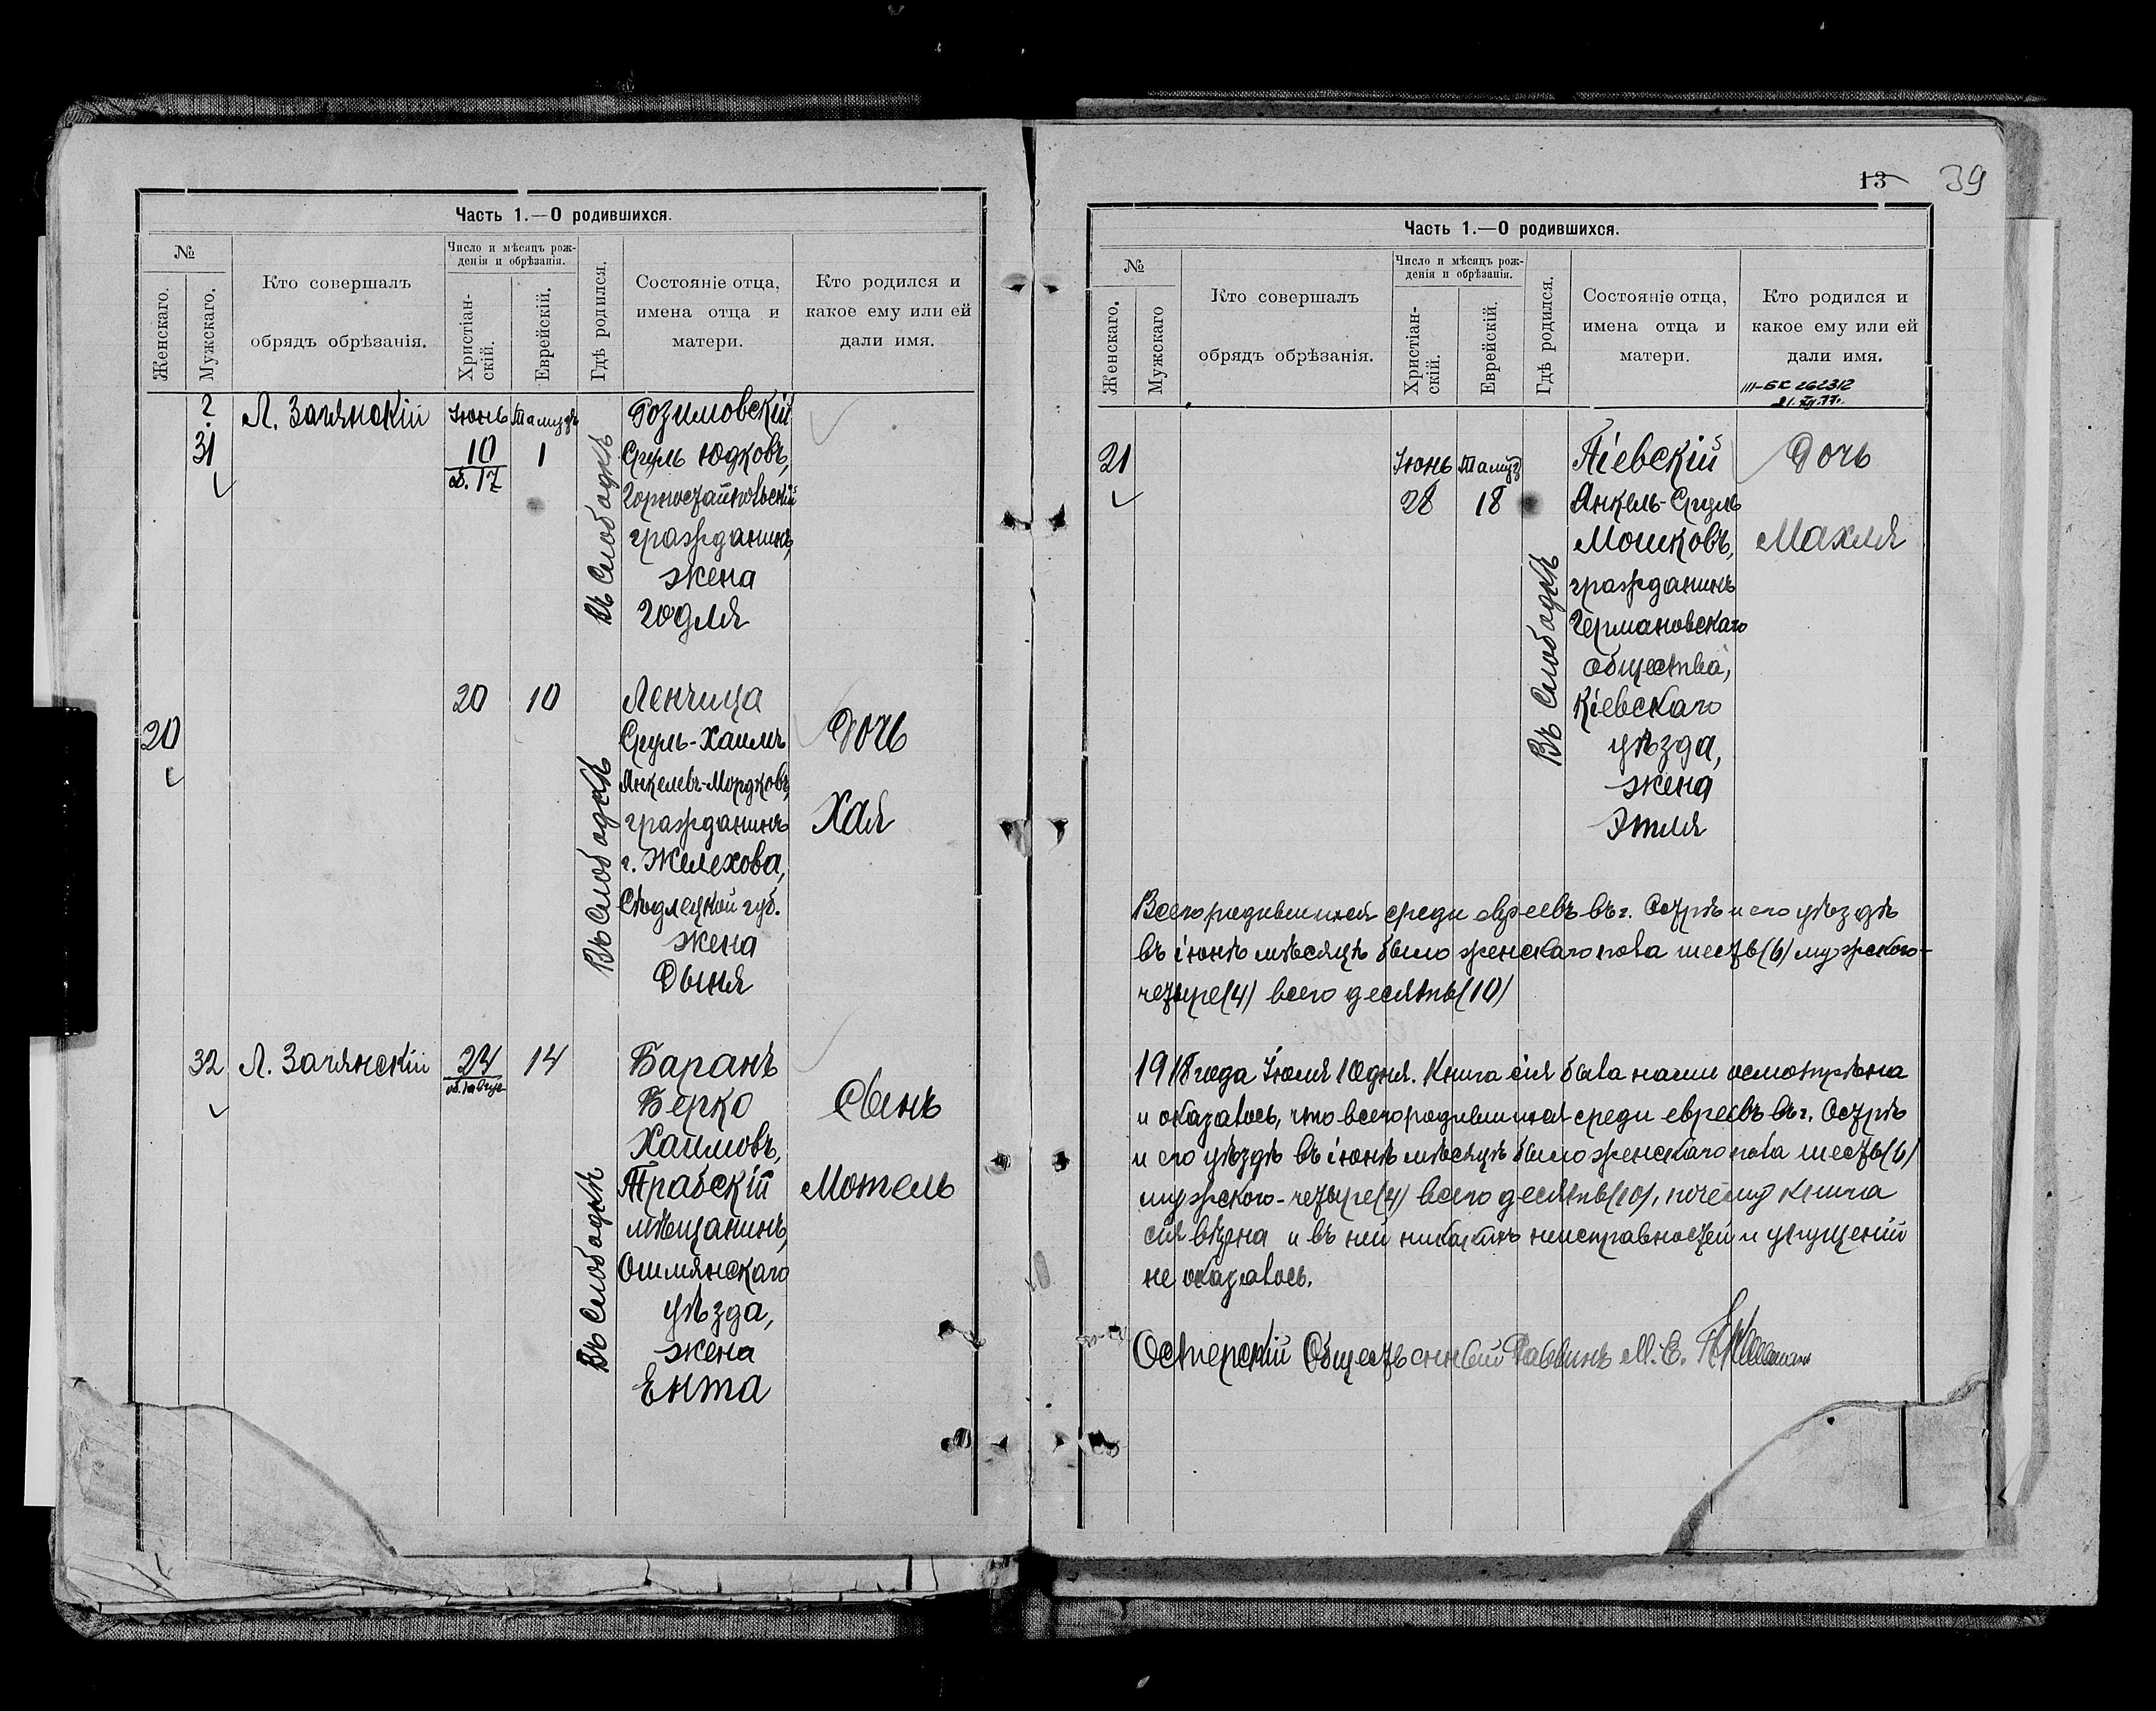 Часть 1.—О родившихся.
№
Женскаго.
Мужскаго.
Кто совершалъ
обрядъ обрѣзанія.
Число и мѣсяцъ рож-
денія и обрѣзанія.
Христіан-
скій.
Еврейскій.
Гдѣ родился.
Состояніе отца,
имена отца и
матери.
Кто родился и
какое ему или ей
дали имя.
?
31
Л. Загянскій
Іюнь
10
об. 17
Тамузъ
1
Въ Слободкѣ
Розимовскій
Сруль Юдковъ,
Горностайпольскій
гражданинъ,
жена
Годля
20
20
10
Въ Слободкѣ
Ленчица
Сруль-Хаимъ
Янкелевъ-Мордковъ,
гражданинъ
г. Желехова,
Сѣдлецкой губ.
жена
Дыня
Дочь
Хая
32
Л. Загянскій
24
14
Въ Слободкѣ
Баранъ
Берко
Хаимовъ,
Трабскій
мѣщанинъ,
Ошмянскаго
уѣзда,
жена
Ента
Сынъ
Мотель
13
39
Часть 1.—О родившихся.
№
Женскаго.
Мужскаго
Кто совершалъ
обрядъ обрѣзанія.
Число и мѣсяцъ рож-
денія и обрѣзанія.
Христіан-
скій.
Еврейскій.
Гдѣ родился.
Состояніе отца,
имена отца и
матери.
Кто родился и
какое ему или ей
дали имя.
III-БК 262312
21
Іюнь
28
Тамуз
18
Въ Слободкѣ
Піевскій
Янкель-Сруль
Мошковъ,
гражданинъ
Германовскаго
общества,
Кіевскаго
уѣзда,
жена
Этля
Дочь
Махля
Всего родившихся среди евреевъ въ г. Острѣ и его уѣздѣ
въ іюнѣ мѣсяцѣ было женскаго пола шесть (6) мужского-
четыре (4) всего десять (10)
1918 года Іюля 10 дня. Книга сія была нами осмотрѣна
и оказалось, что всего родившихся среди евреевъ въ г. Острѣ
и его уѣздѣ въ іюнѣ мѣсяцѣ было женскаго пола шесть (6)
мужского-четыре (4) всего десять (10), почему книга
сія вѣрна и въ ней никакихъ неисправностей и упущеній
не оказалось.
Остерскій Общественный Раввинъ М. Е.